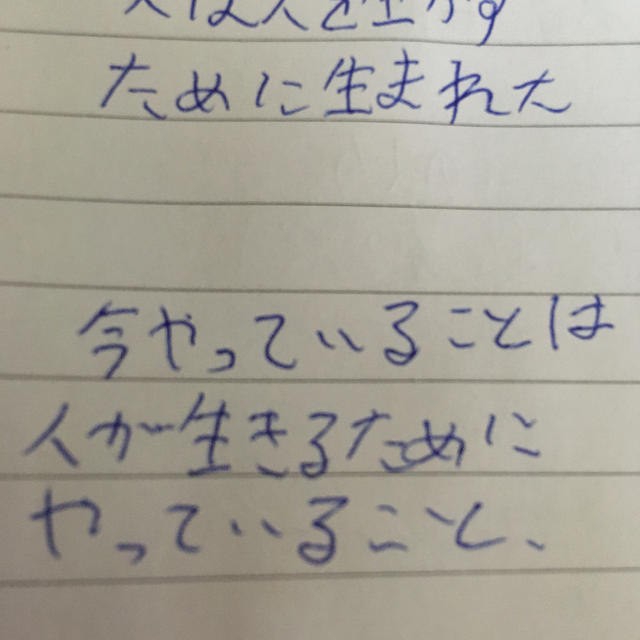 人は人を生かす
ために生まれた
今やっていることは
人が生きるために
やっていること、